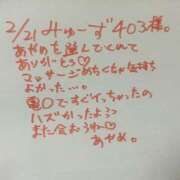 2/21 みゅーず403様。
あやめを選んでくれて
ありがとう♡
マッサージめちゃくちゃ気持ち
よかった…。
電〇ですぐイっちゃったの
ハズかったよぅ
また会おうね♡
あやめ。